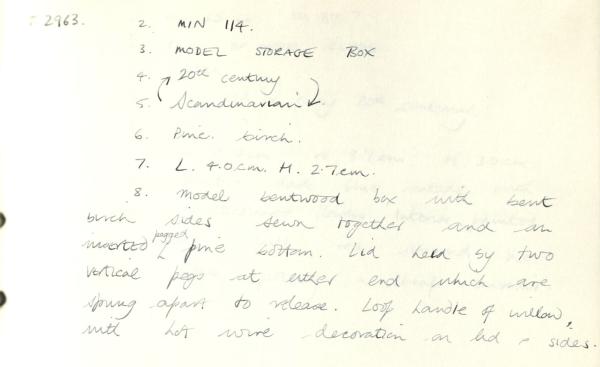 2963. 2. MIN 114.
3. MODEL STORAGE BOX
4. 20th century
5. Scandinavian
6. Pine. birch.
7. L. 4.0cm. H. 2.7cm.
8. Model bentwood box with bent
birch sides sewn together and an
inserted pegged pine bottom. Lid held by two
vertical pegs at either end which are
sprung apart to release. Loop handle of willow,
with hot wire decoration on lid + sides.